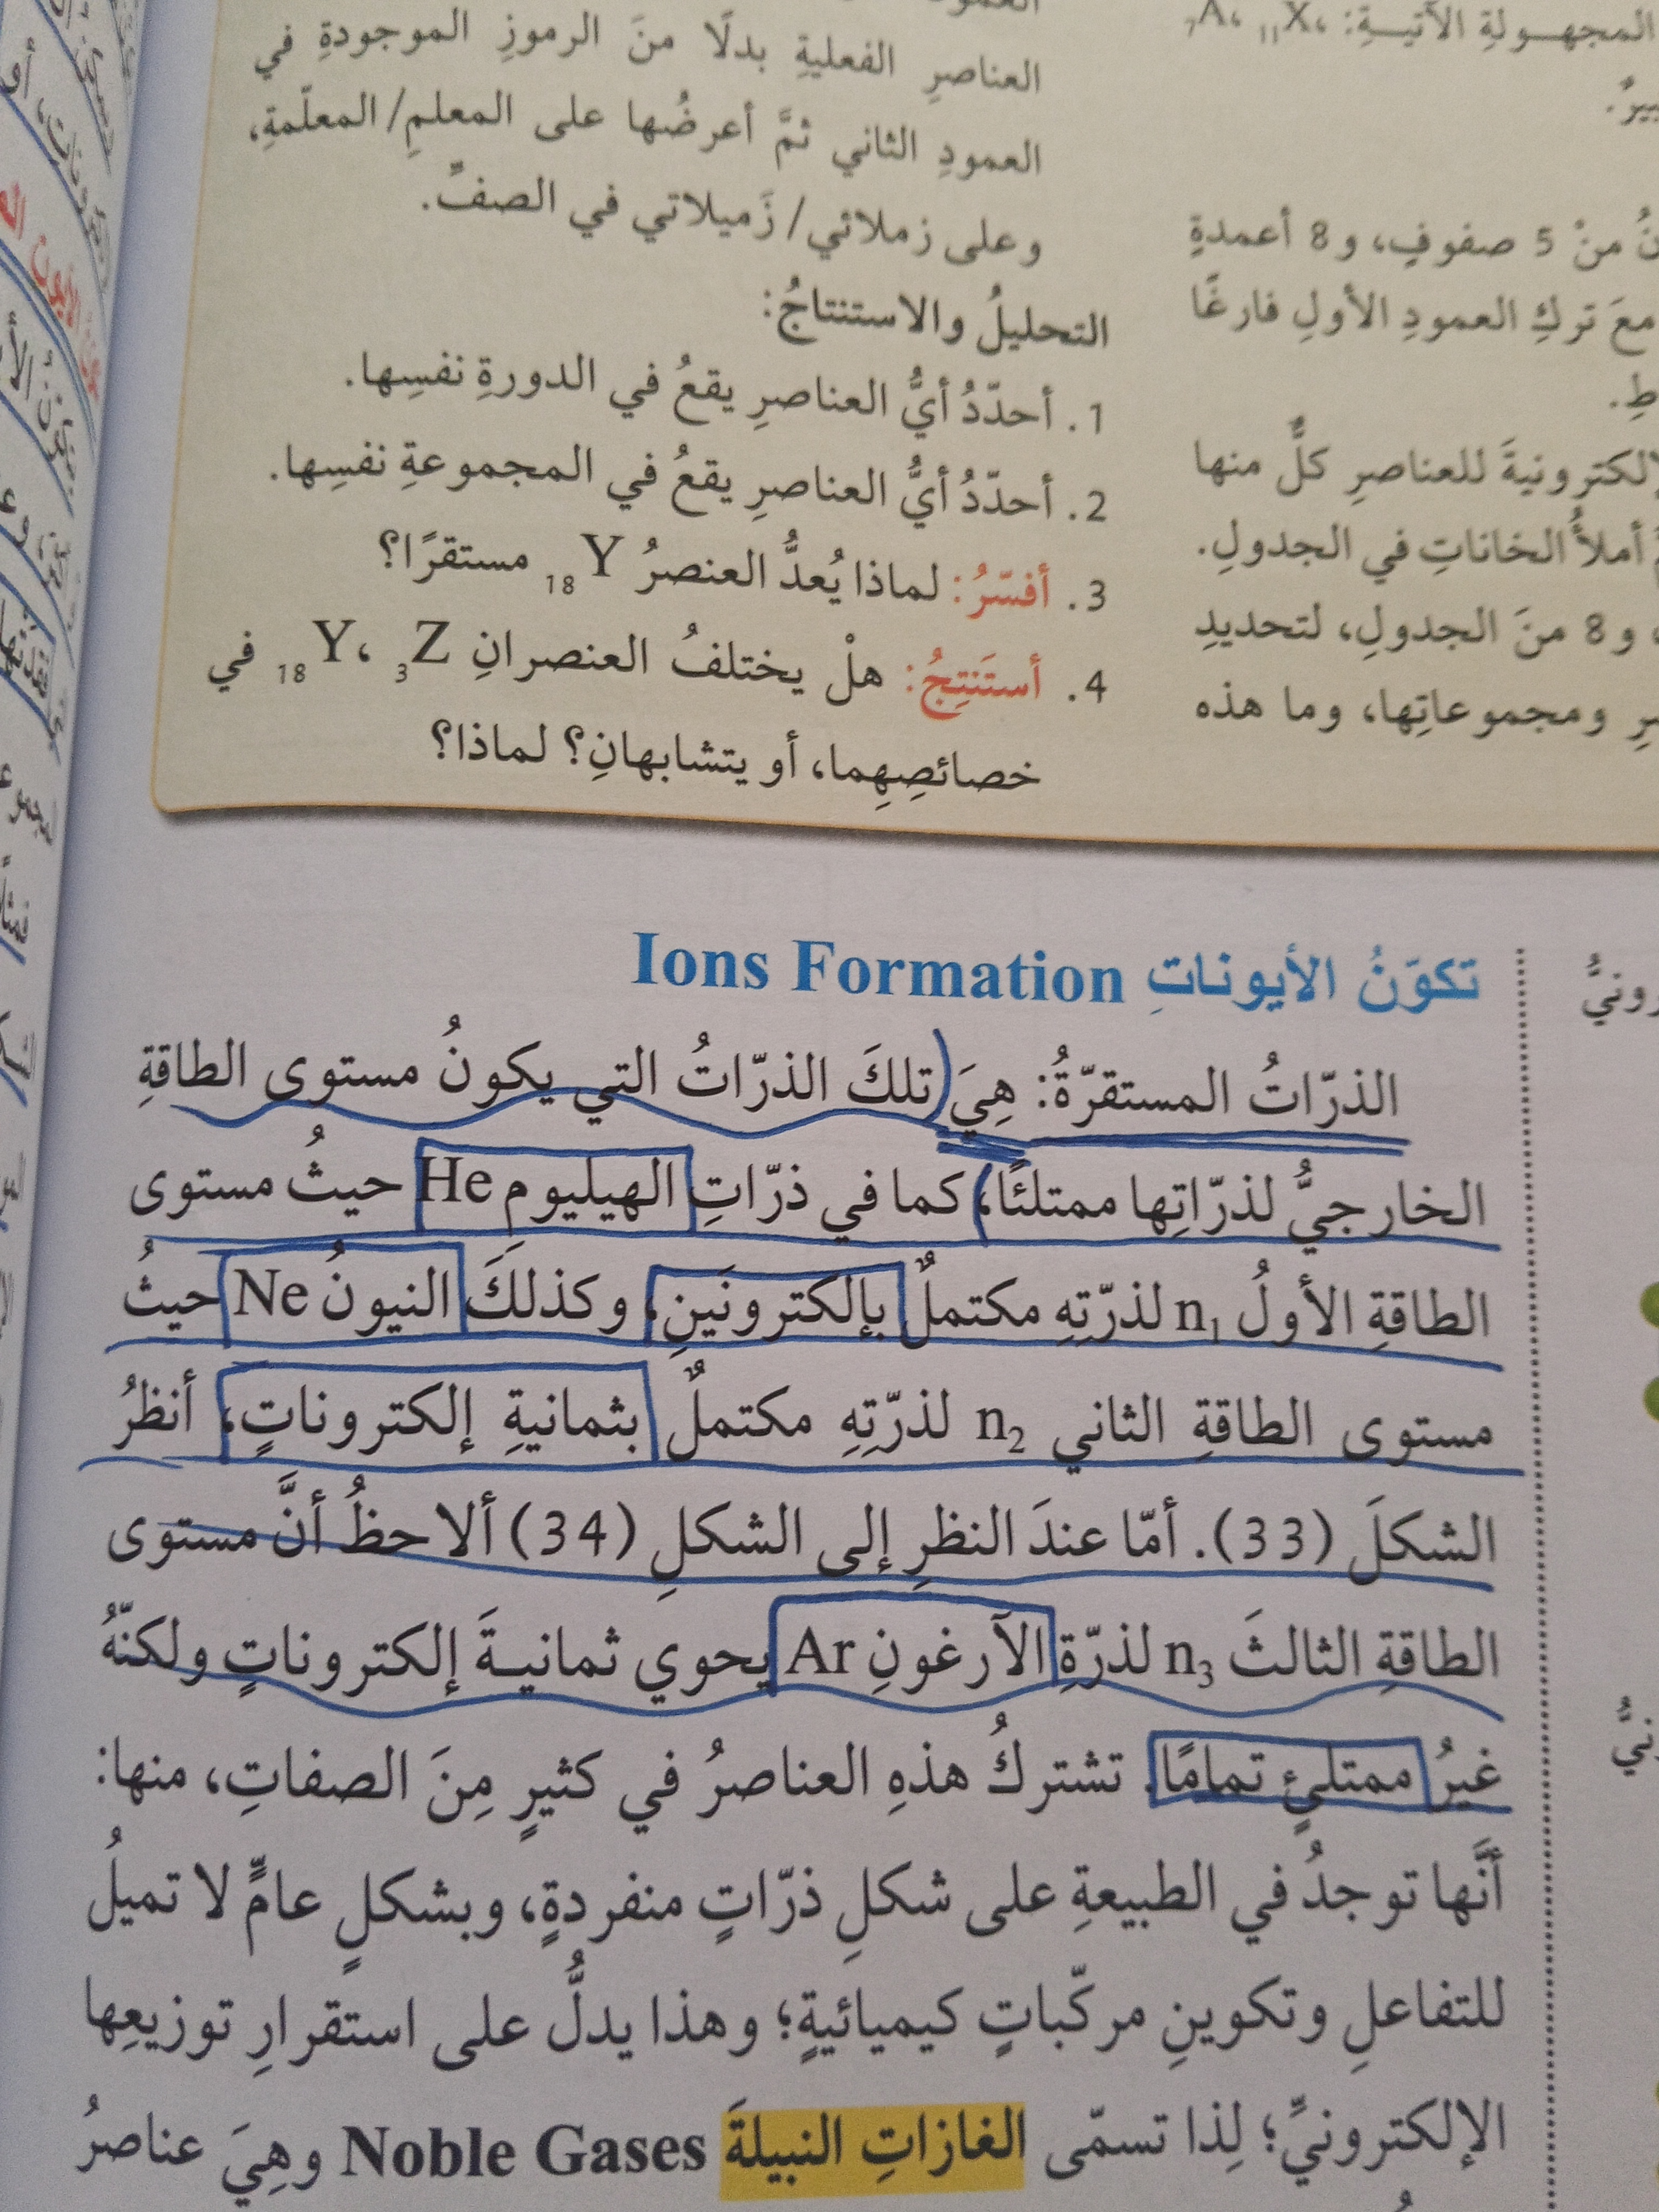 المجهولةِ الآتيةِ: ₇A، ₁₁X،
نُ منْ 5 صفوفٍ، و8 أعمدةٍ
معَ تركِ العمودِ الأولِ فارغًا
للعناصرِ كلٌّ منها
أملأُ الخاناتِ في الجدولِ.
و8 منَ الجدولِ، لتحديدِ
ومجموعاتِها، وما هذه
العناصرِ الفعليةِ بدلًا منَ الرموزِ الموجودةِ في
العمودِ الثاني ثمَّ أعرضُها على المعلمِ/المعلّمةِ،
وعلى زملائي/ زَميلاتي في الصفِّ.
التحليلُ والاستنتاجُ:
1. أحدّدُ أيُّ العناصرِ يقعُ في الدورةِ نفسِها.
2. أحدّدُ أيُّ العناصرِ يقعُ في المجموعةِ نفسِها.
3. أفسّرُ: لماذا يُعدُّ العنصرُ ₁₈Y مستقرًا؟
4. أستَنتِجُ: هلْ يختلفُ العنصرانِ ₃Z ،₁₈Y في
خصائصِهِما، أو يتشابهانِ؟ لماذا؟
تكوّنُ الأيوناتِ Ions Formation
الذرّاتُ المستقرّةُ: هِيَ تلكَ الذرّاتُ التي يكونُ مستوى الطاقةِ
الخارجيُّ لذرّاتِها ممتلئًا، كما في ذرّاتِ الهيليوم He حيثُ مستوى
الطاقةِ الأولُ n₁ لذرّتِهِ مكتملٌ بإلكترونَينِ، وكذلكَ النيونُ Ne حيثُ
مستوى الطاقةِ الثاني n₂ لذرّتِهِ مكتملٌ بثمانيةِ إلكتروناتٍ، أنظرُ
الشكلَ (33). أمّا عندَ النظرِ إلى الشكلِ (34) ألاحظُ أنَّ مستوى
الطاقةِ الثالثَ n₃ لذرّةِ الآرغونِ Ar يحوي ثمانيةَ إلكتروناتٍ ولكنّهُ
غيرُ ممتلئٍ تمامًا. تشتركُ هذهِ العناصرُ في كثيرٍ مِنَ الصفاتِ، منها:
أنَّها توجدُ في الطبيعةِ على شكلِ ذرّاتٍ منفردةٍ، وبشكلٍ عامٍّ لا تميلُ
للتفاعلِ وتكوينِ مركّباتٍ كيميائيةٍ؛ وهذا يدلُّ على استقرارِ توزيعِها
الإلكترونيِّ؛ لِذا تسمّى الغازاتِ النبيلةَ Noble Gases وهِيَ عناصرُ